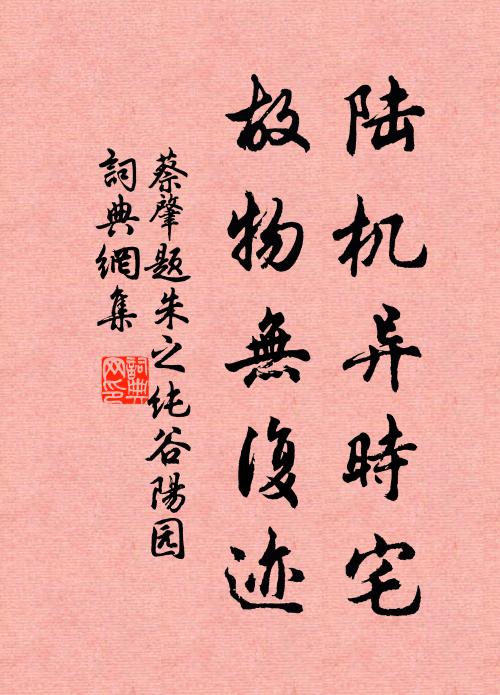 陆机异時宅
故物無復迹
蔡肇题朱之纯谷陽园
詞典網集
詞典網印